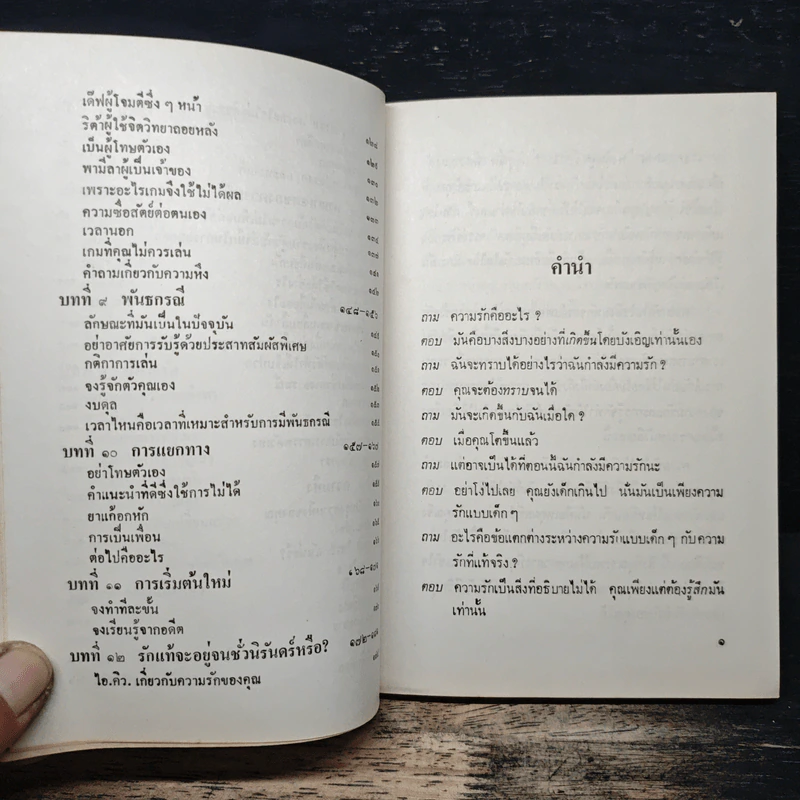 เด๊ฟผู้โจมตีซึ่ง ๆ หน้า
ริต้าผู้ใช้จิตวิทยาถอยหลัง ๑๒๘
เป็นผู้โทษตัวเอง ๑๒๙
พามีลาผู้เป็นเจ้าของ ๑๓๑
เพราะอะไรเกมจึงใช้ไม่ได้ผล ๑๓๒
ความซื่อสัตย์ต่อตนเอง ๑๓๓
เวลานอก ๑๓๔
เกมที่คุณไม่ควรเล่น ๑๓๘
คำถามเกี่ยวกับความหึง ๑๔๑
๑๔๒
บทที่ ๙ พันธกรณี ๑๔๘-๑๕๖
ลักษณะที่มันเป็นในปัจจุบัน
อย่าอาศัยการรับรู้ด้วยประสาทสัมผัสพิเศษ
กติกาการเล่น
จงรู้จักตัวคุณเอง
งบดุล
เวลาไหนคือเวลาที่เหมาะสำหรับการมีพันธกรณี
บทที่ ๑๐ การแยกทาง
อย่าโทษตัวเอง
คำแนะนำที่ดีซึ่งใช้การไม่ได้
ยาแก้อกหัก
การเป็นเพื่อน
ต่อไปคืออะไร
บทที่ ๑๑ การเริ่มต้นใหม่
จงทำทีละขั้น
จงเรียนรู้จากอดีต
บทที่ ๑๒ รักแท้จะอยู่จนชั่วนิรันดร์หรือ?
ไอ.คิว. เกี่ยวกับความรักของคุณ
คำนำ
ถาม ความรักคืออะไร ?
ตอบ มันคือบางสิ่งบางอย่างที่เกิดขึ้นโดยบังเอิญเท่านั้นเอง
ถาม ฉันจะทราบได้อย่างไรว่าฉันกำลังมีความรัก ?
ตอบ คุณจะต้องทราบจนได้
ถาม มันจะเกิดขึ้นกับฉันเมื่อใด ?
ตอบ เมื่อคุณโตขึ้นแล้ว
ถาม แต่อาจเป็นได้ที่ตอนนี้ฉันกำลังมีความรักนะ
ตอบ อย่าโง่ไปเลย คุณยังเด็กเกินไป นั่นมันเป็นเพียงความ
รักแบบเด็ก ๆ
ถาม อะไรคือข้อแตกต่างระหว่างความรักแบบเด็ก ๆ กับความ
รักที่แท้จริง ?
ตอบ ความรักเป็นสิ่งที่อธิบายไม่ได้ คุณเพียงแต่ต้องรู้สึกมัน
เท่านั้น
๑